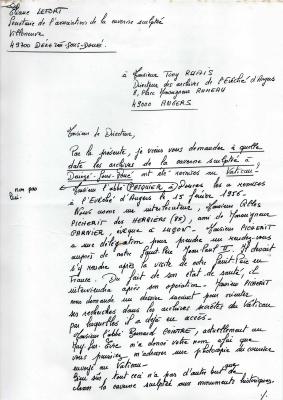 Eliane LEFORT
Secrétaire de l'association de la caverne sculptée
Villeneuve
49700 DÉNEZÉ-SOUS-DOUÉ.
à Monsieur Tony
Directeur des archives de l'Evêché d'Angers
8, Place Monseigneur RUMEAU
49000 ANGERS
Monsieur le Directeur,
Par la présente, je viens vous demander à quelle
date les archives de la caverne sculptée à
Dénezé-sous-Doué ont été remises au Vatican.
non pas
Monsieur l'abbé à les a remises
à l'Evêché d'Angers le 15 février 1956.
Nous avons un interlocuteur, Monsieur Albert
PICHERIT des HERBIERS (85), ami de Monseigneur
GARNIER, évêque à LUÇON. Monsieur PICHERIT
a une délégation pour prendre un rendez-vous
auprès de notre Saint-Père Jean-Paul II. Il devait
s'y rendre après la visite de notre Saint-Père en
France. Du fait de son état de santé, il
interviendra après son opération. Monsieur PICHERIT
nous demande un dossier succinct pour orienter
ses recherches dans les archives secrètes du Vatican
par lesquelles il a déjà un accès.
Monsieur l'abbé Bernard, actuellement au
m'a donné votre nom afin que
vous puissiez m'adresser une photocopie du courrier
envoyé au Vatican.
tout ceci n'a pas d'autre but que
classer la caverne sculptée aux monuments historiques.